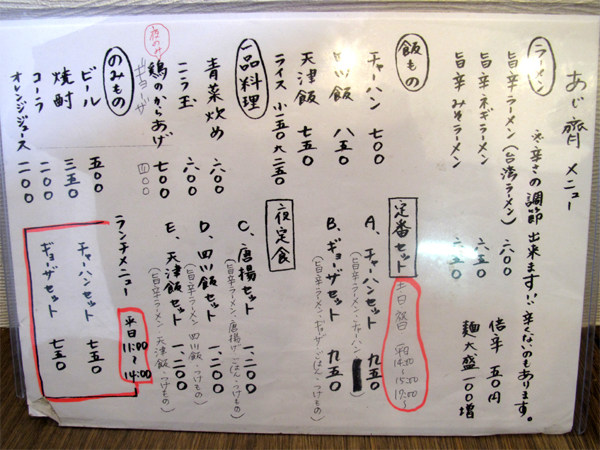 あじ齊 メニュー
ラーメン
※辛さの調節出来ます!!辛くないのもあります。
旨辛ラーメン(台湾ラーメン) 六〇〇
旨辛ネギラーメン 六五〇
旨辛みそラーメン 六五〇
倍辛 五〇円
麺大盛 一〇〇増
飯もの
チャーハン 七〇〇
四川飯 八五〇
天津飯 七五〇
ライス 小一五〇 大二五〇
一品料理
青菜炒め 六〇〇
ニラ玉 六〇〇
夜のみ
鶏のからあげ 七〇〇
ギョーザ 四〇〇
のみもの
ビール 五〇〇
焼酎 三五〇
コーラ 二〇〇
オレンジジュース 二〇〇
定番セット
土日祭日 平日
14:30
〜15:00
17:00〜
A、チャーハンセット 九五〇
(旨辛ラーメン・チャーハン
B、ギョーザセット 九五〇
(旨辛ラーメン・ギョーザ・ごはん・つけもの)
夜定食
C、唐揚セット 一、二〇〇
(旨辛ラーメン・唐揚げ・ごはん・つけもの)
D、四川飯セット 一、二〇〇
(旨辛ラーメン 四川飯・つけもの)
E、天津飯セット 一、二〇〇
(旨辛ラーメン・天津飯・つけもの)
ランチメニュー
平日
11:00
〜
14:00
チャーハンセット 七五〇
ギョーザセット 七五〇